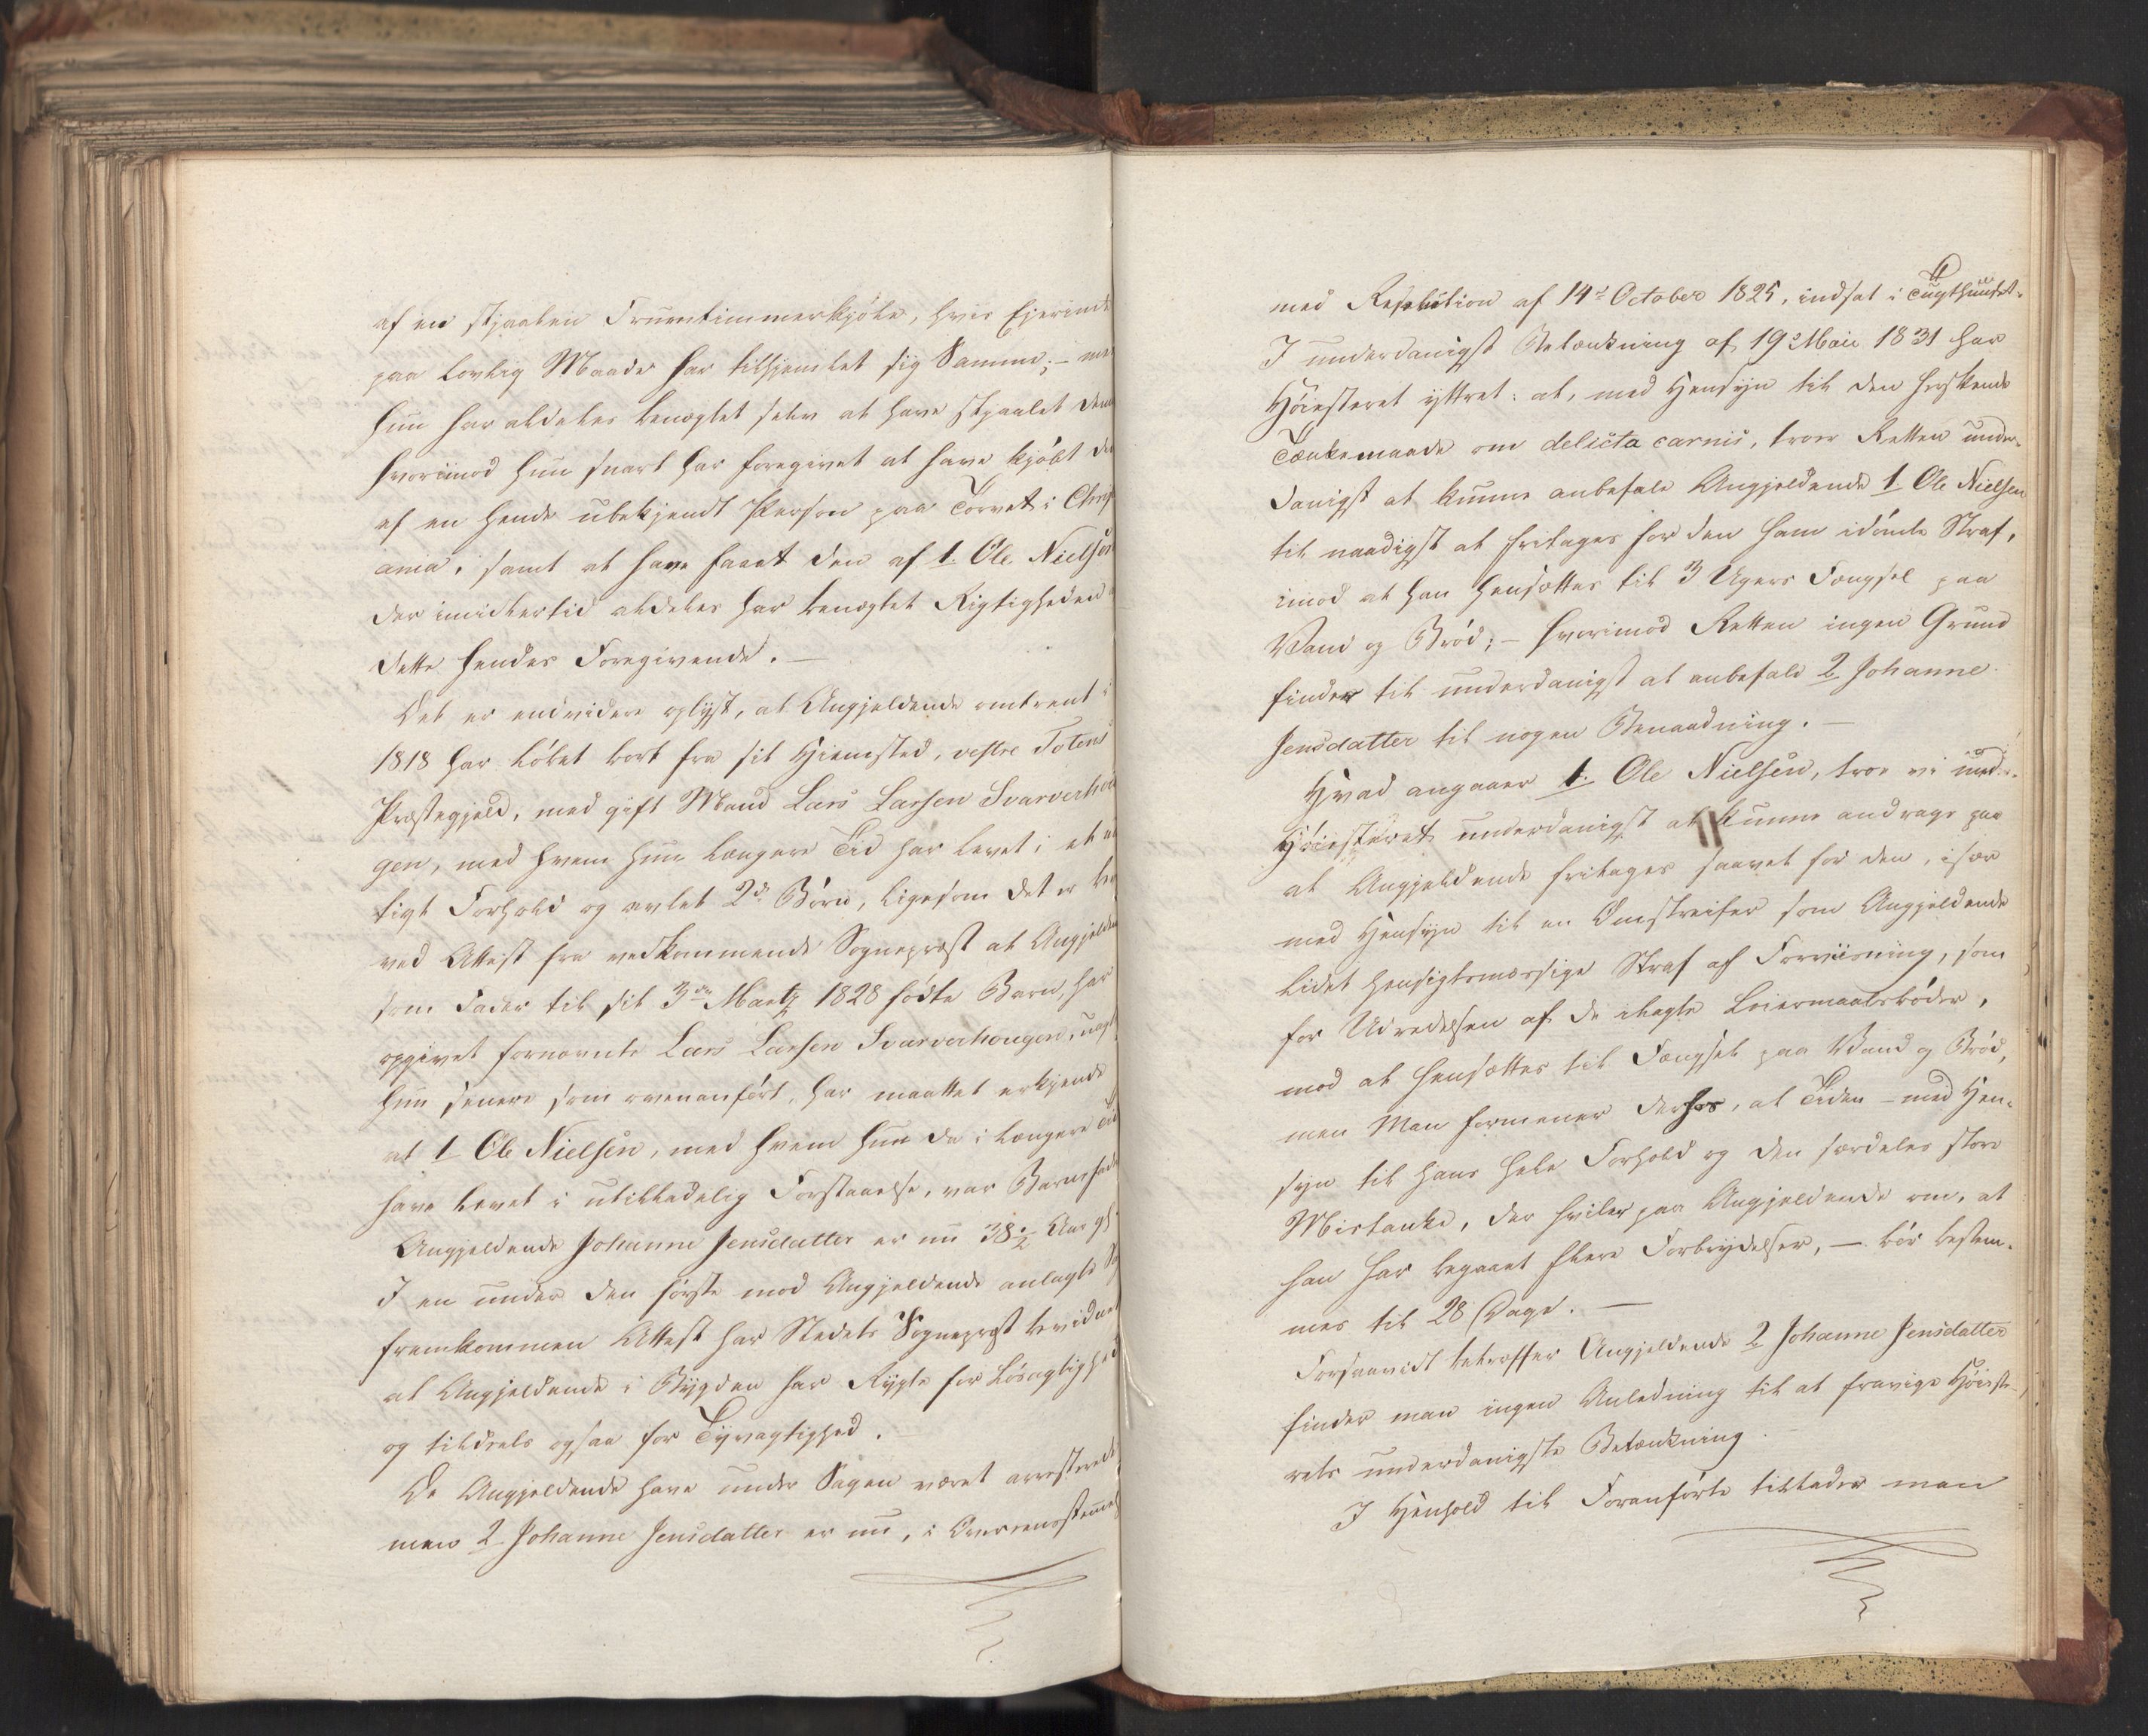 af en stjaalen Fruentimmerkjole, hvis Ejerinde
paa lovlig Maade har tilhjemlet sig Samme; – men
hun har aldeles benægtet selv at have stjaalet den
hvorimod hun snart har foregivet at have kjøbt den
af en hende ubekjendt Person paa Torvet i Christi
ania, samt at have faaet den af 1. Ole Nielsen
der imidlertid aldeles har benægtet Rigtigheden a
dette hendes Foregivende. —
Det er endvidere oplyst, at Angjeldende omtrent i
1818 har løbet bort fra sit Hjemsted, vestre Totens
Præstegjeld, med gift Mand Lars Larsen Svarverhou
gen, med hvem hun længere Tid har levet i et u
tigt Forhold og avlet 2de Børn, ligesom det er be
ved Attest fra vedkommende Sognepræst at Angjelden
som Fader til sit 3die Martz 1828 fødte Barn, har
opgivet fornævnte Lars Larsen Svarverhougen, uagt
hun senere som ovenanført, har maattet erkjende
at 1 Ole Nielsen, med hvem hun da i længere Tid
have levet i utilladelig Forstaaelse, var Barnefader
Angjeldende Johanne Jensdatter er nu 38½ Aar gl
I en under den første mod Angjeldende anlagte Sag
fremkommen Attest har Stedets Sognepræst bevidnet
at Angjeldende i Bygden har Rygte for Løsagtighed
og tildeels ogsaa for Tyvagtighed.
De Angjeldende have under Sagen været arresterede
men 2 Johanne Jensdatter er nu, i Overensstemmels
med Resolution af 14de October 1825, indsat i Tugthuuset.
I underdanigst Betænkning af 19 Maii 1831 har
Høiesteret yttret: at, med Hensyn til den herskende
Tænkemaade om delicta carnis, troer Retten under-
danigst at kunne anbefale Angjeldende 1. Ole Nielsen
til naadigst at fritages for den ham idømte Straf,
imod at han hensættes til 3 Ugers Fængsel paa
Vand og Brød; – hvorimod Retten ingen Grund
finder til underdanigst at anbefale 2 Johanne
Jensdatter til nogen Benaadning. —
Hvad angaaer 1. Ole Nielsen, troe vi med
Høiesteret underdanigst at kunne andrage paa
at Angjeldende fritages saavel for den, især
med Hensyn til en Omstreifer som Angjeldende
lidet hensigtsmæssige Straf af Forviisning, som
for Udredelsen af de ilagte Leiermaalsbøder,
mod at hensættes til Fængsel paa Vand og Brød,
men Man formener derhos, at Tiden – med Hen-
syn til hans hele Forhold og den særdeles store
Mistanke, der hviler paa Angjeldende om, at
han har begaaet flere Forbrydelser, — bør bestem-
mes til 28 Dage. —
Forsaavidt betræffer Angjeldende 2 Johanne Jensdatter
finder man ingen Anledning til at fravige Høieste-
rets underdanigste Betænkning.
I Henhold til Foranførte tillader man